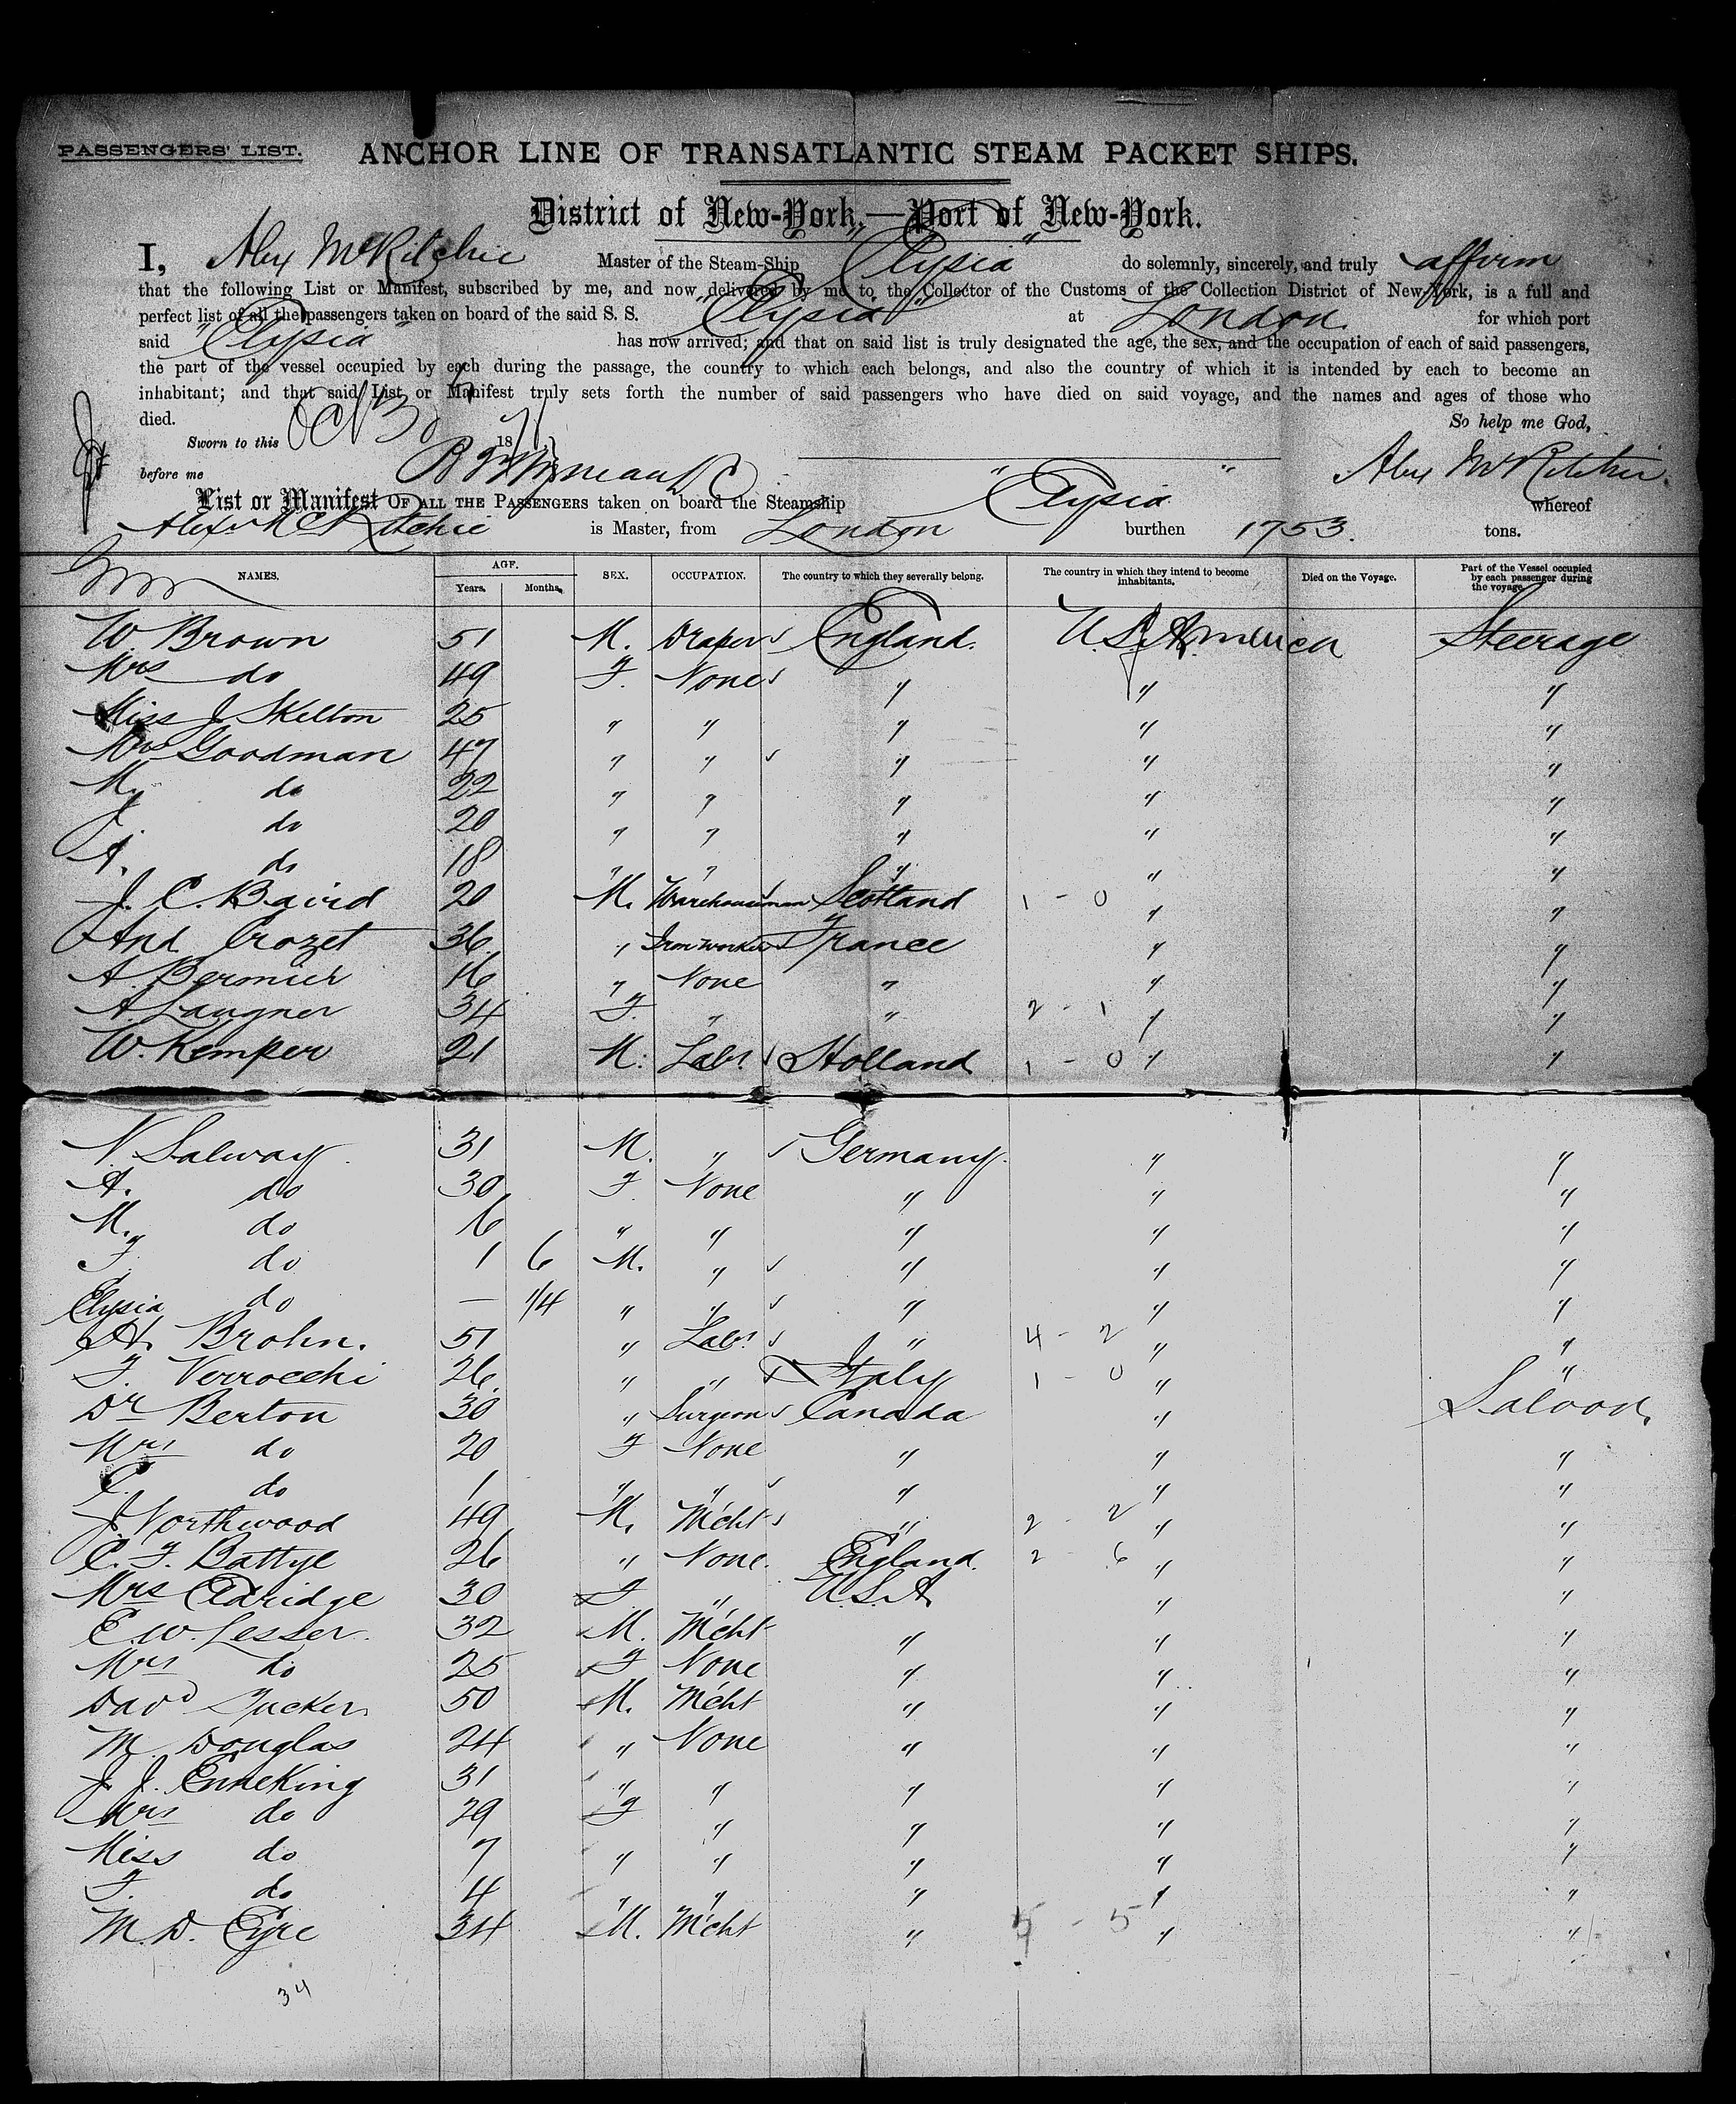 PASSENGERS' LIST.
ANCHOR LINE OF TRANSATLANTIC STEAM PACKET SHIPS.
District of New-York,—Port of New-York.
I, Alex McRitchie Master of the Steam-Ship "Elysia" do solemnly, sincerely, and truly affirm
that the following List or Manifest, subscribed by me, and now delivered by me to the Collector of the Customs of the Collection District of New-York, is a full and
perfect list of all the passengers taken on board of the said S. S. "Elysia" at London for which port
said "Elysia" has now arrived; and that on said list is truly designated the age, the sex, and the occupation of each of said passengers,
the part of the vessel occupied by each during the passage, the country to which each belongs, and also the country of which it is intended by each to become an
inhabitant; and that said List or Manifest truly sets forth the number of said passengers who have died on said voyage, and the names and ages of those who
died. So help me God,
Sworn to this Oct 3 18
before me Alex McRitchie.
List or Manifest OF ALL THE PASSENGERS taken on board the Steamship "Elysia" whereof
Alexr McRitchie is Master, from London burthen 1753. tons.
NAMES. AGE. Years. Months. SEX. OCCUPATION. The country to which they severally belong. The country in which they intend to become inhabitants. Died on the Voyage. Part of the Vessel occupied by each passenger during the voyage.
W. Brown 51 M. Draper England. U.S. America Steerage
Mrs do 49 F. None " " "
Miss J Skelton 25 " " " " "
Mrs Goodman 47 " " " " "
My do 22 " " " " "
J. do 20 " " " " "
A. do 18 " " " " "
J. C. Baird 20 M. Warehouseman Scotland 1 - 0 " "
And Crozet 36 " Iron worker France " "
A. Bermier 16 " None " " "
A Laugner 34 F. " " 2 - 1 " "
W. Kemper 21 M. Labr Holland 1 - 0 " "
N Salway 31 M. " Germany " "
A. do 30 F. None " " "
My do 6 " " " " "
F. do 1 6 M. " " " "
Elysia do — 1/4 " " " " "
H. Brohn. 51 " Labr " 4 - 2 " "
F. Verrocchi 26 " " Italy 1 - 0 " "
Dr Berton 30 " Surgeon Canada " Saloon
Mrs do 20 F None " " "
C. do 1 " " " " "
J. Northwood 49 M. Mcht " 2 - 2 " "
C. F. Battye 26 " None. England 2 - 6 " "
Mrs Eldridge 30 F " U.S.A " "
E. W. Lesser. 32 M. Mcht " " "
Mrs do 25 F None " " "
Davd Tucker 50 M. Mcht " " "
M. Douglas 24 " None " " "
J. J. Enneking 31 " " " " "
Mrs do 29 F " " " "
Miss do 7 " " " " "
F. do 4 " " " " "
M. D. Eyre 34 M. Mcht " 5 - 5 " "
34